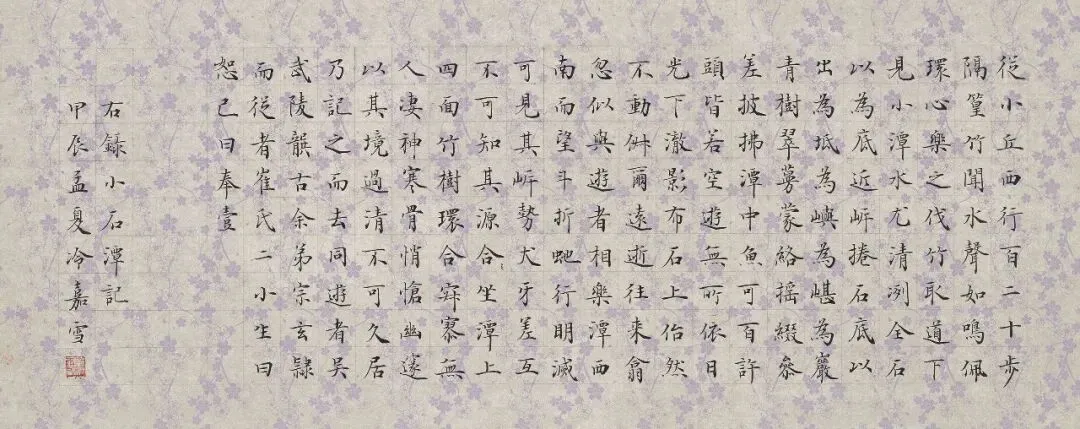 從小丘西行百二十步
隔篁竹聞水聲如鳴佩
環心樂之伐竹取道下
見小潭水尤清冽全石
以為底近岸捲石底以
出為坻為嶼為嵁為巖
青樹翠蔓蒙絡搖綴參
差披拂潭中魚可百許
頭皆若空遊無所依日
光下澈影布石上佁然
不動俶爾遠逝往來翕
忽似與遊者相樂潭西
南而望斗折虵行明滅
可見其岸勢犬牙差互
不可知其源合坐潭上
四面竹樹環合寂寥無
人凄神寒骨悄愴幽邃
以其境過清不可久居
乃記之而去同遊者吳
武陵龔古余弟宗玄隸
而從者崔氏二小生曰
恕己曰奉壹
右錄小石潭記
甲辰孟夏冷嘉雪